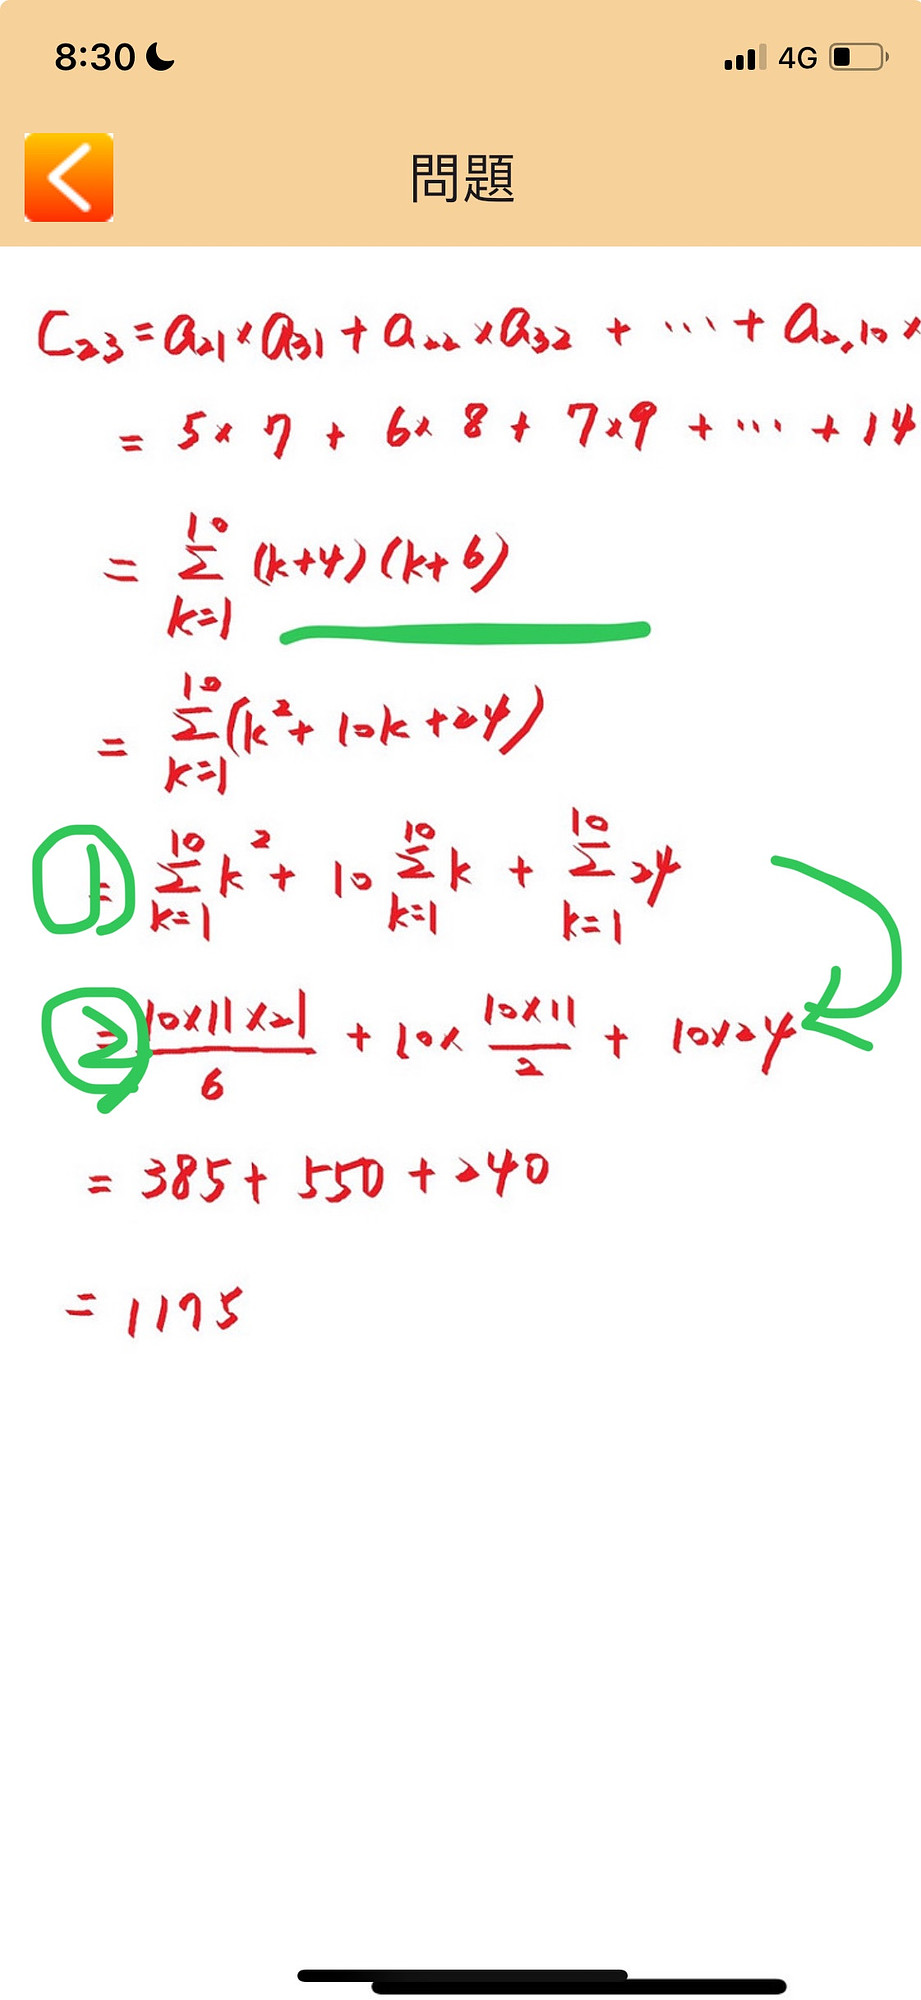 8:30 4G
問題
C₂₃ = a₂₁ × a₃₁ + a₂₂ × a₃₂ + ⋯ + a₂,₁₀ ×
= 5 × 7 + 6 × 8 + 7 × 9 + ⋯ + 14
= 10 Σ k=1 (k+4)(k+6)
= 10 Σ k=1 (k² + 10k + 24)
① = 10 Σ k=1 k² + 10 10 Σ k=1 k + 10 Σ k=1 24
② = 10×11×21/6 + 10× 10×11/2 + 10×24
= 385 + 550 + 240
= 1175